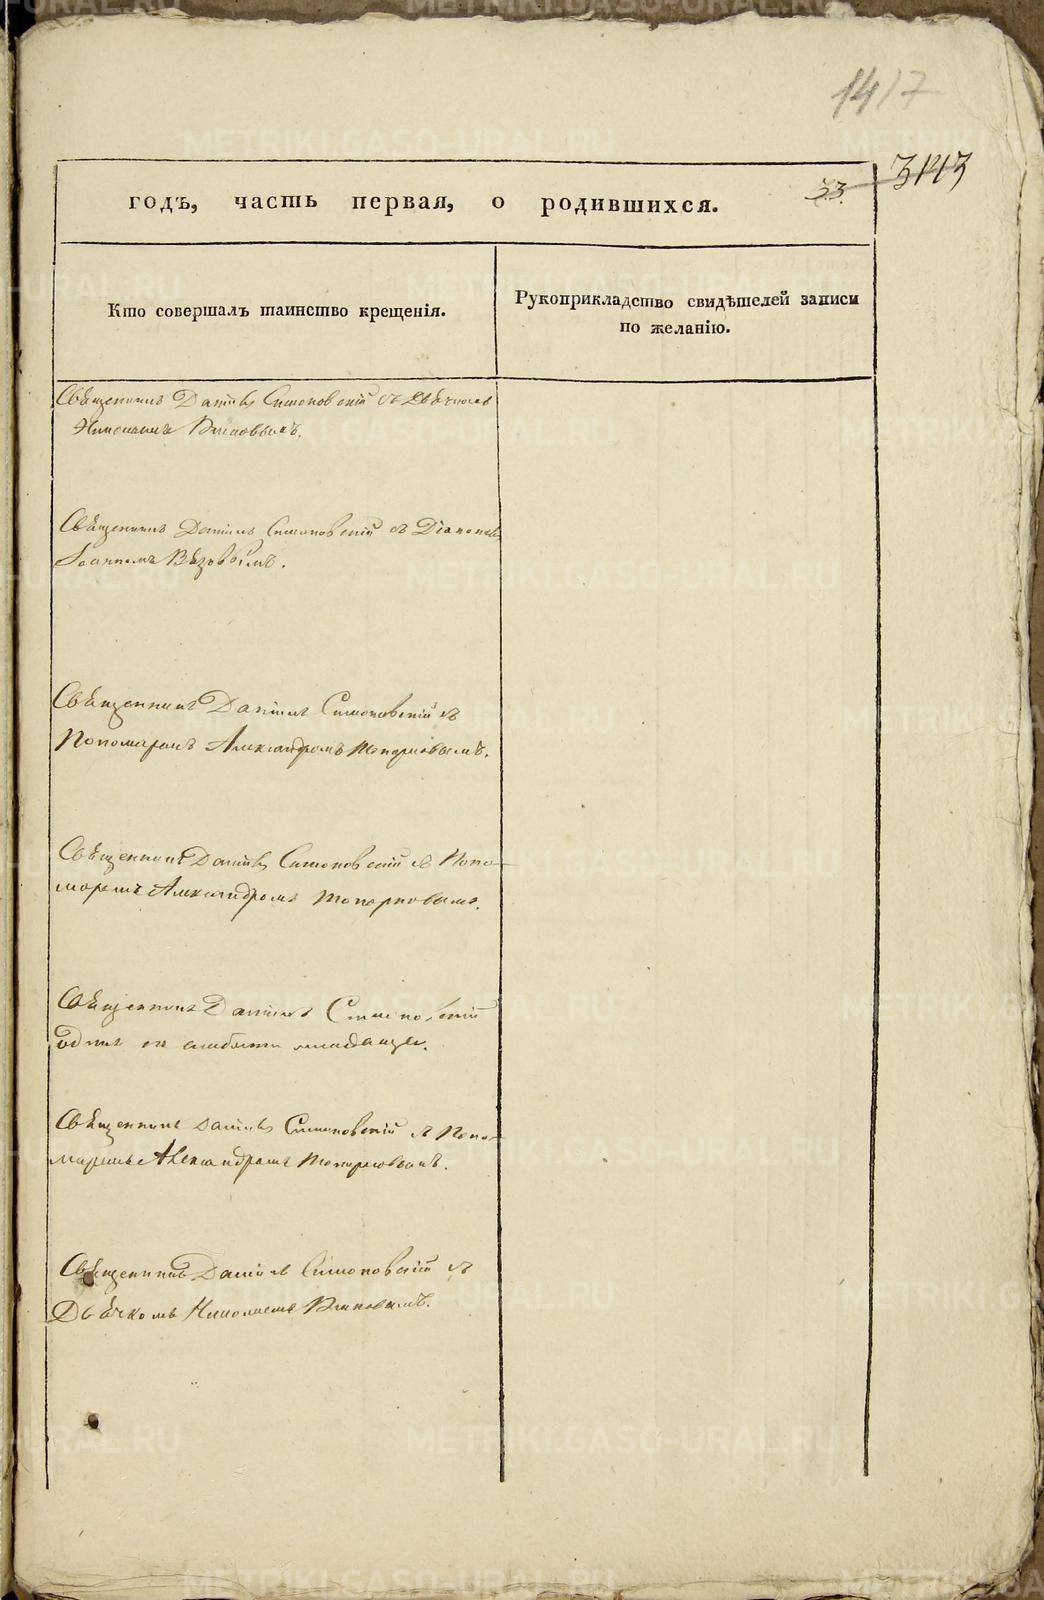 1417
3143
33.
годъ, часть первая, о родившихся.
Кто совершалъ таинство крещенія.
Рукоприкладство свидѣтелей записи
по желанію.
Священникъ Даніилъ Симоновскій съ Дьячкомъ
Николаемъ
Священникъ Даніилъ Симоновскій съ Діакономъ
Іоанномъ
Священникъ Даніилъ Симоновскій съ
Пономаремъ Александромъ Топорковымъ.
Священникъ Даніилъ Симоновскій съ Поно-
маремъ Александромъ Топорковымъ.
Священникъ Даніилъ Симоновскій
одинъ по слабости младенца.
Священникъ Даніилъ Симоновскій съ Поно-
маремъ Александромъ Топорковымъ.
Священникъ Даніилъ Симоновскій съ
Дьячкомъ Николаемъ
METRIKI.GASO-URAL.RU